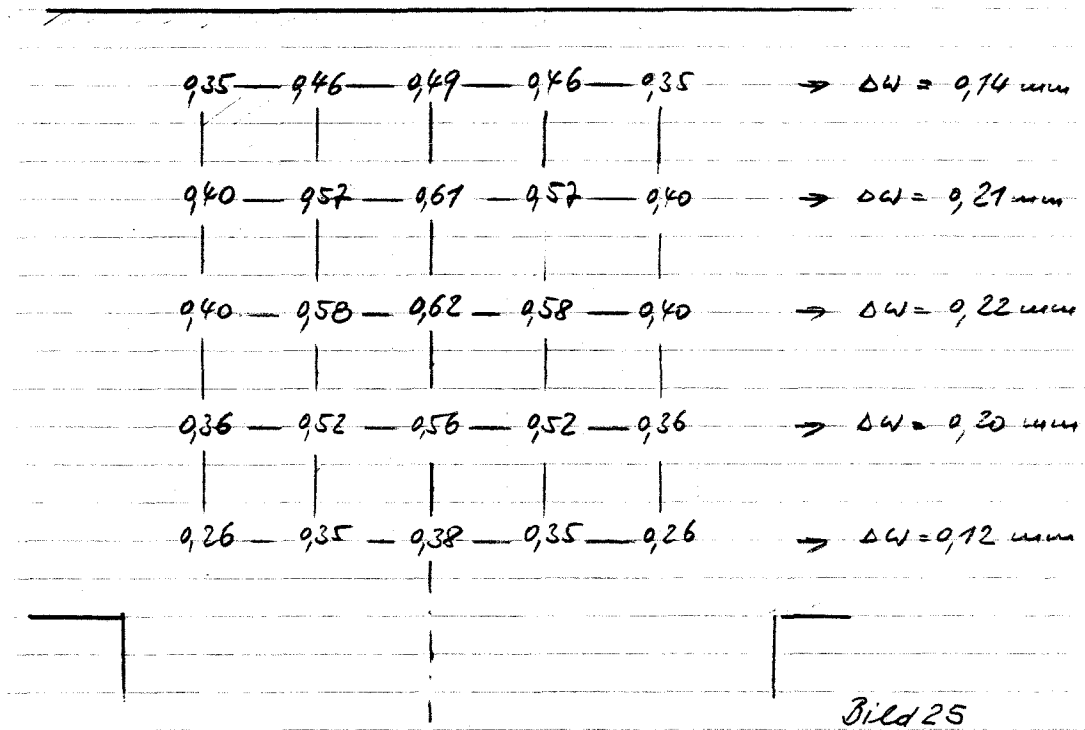 0,35 — 0,46 — 0,49 — 0,46 — 0,35 → ΔW = 0,14 mm
0,40 — 0,57 — 0,61 — 0,57 — 0,40 → ΔW = 0,21 mm
0,40 — 0,58 — 0,62 — 0,58 — 0,40 → ΔW = 0,22 mm
0,36 — 0,52 — 0,56 — 0,52 — 0,36 → ΔW = 0,20 mm
0,26 — 0,35 — 0,38 — 0,35 — 0,26 → ΔW = 0,12 mm
Bild 25